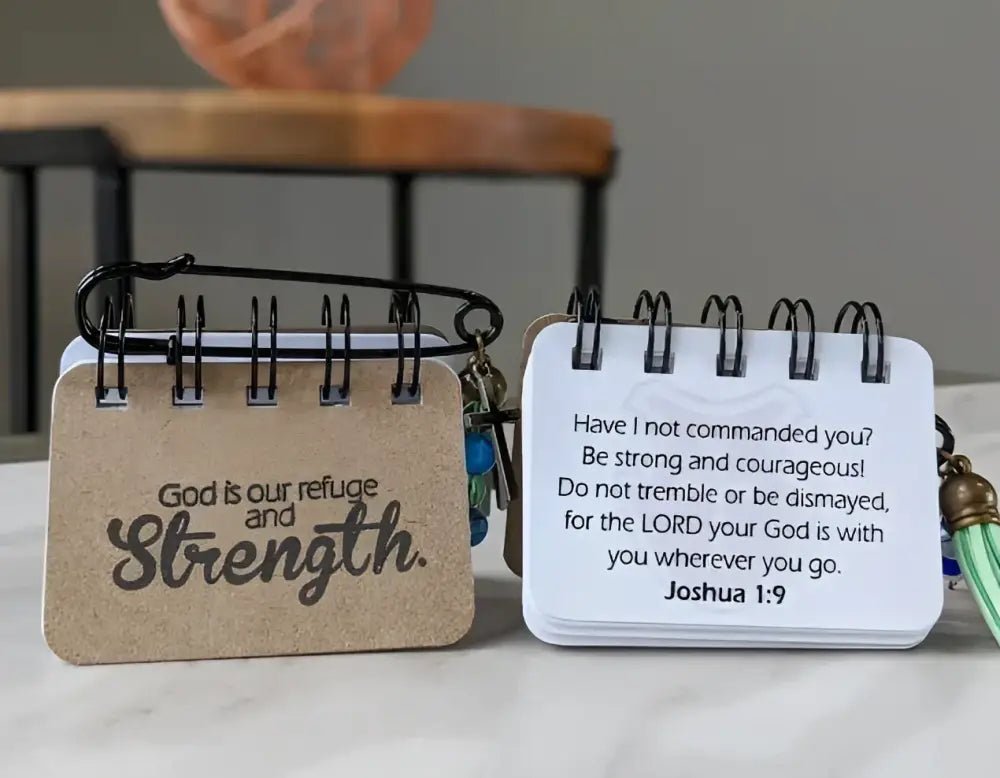 God is our refuge
and
Strength.
Have I not commanded you?
Be strong and courageous!
Do not tremble or be dismayed,
for the LORD your God is with
you wherever you go.
Joshua 1:9